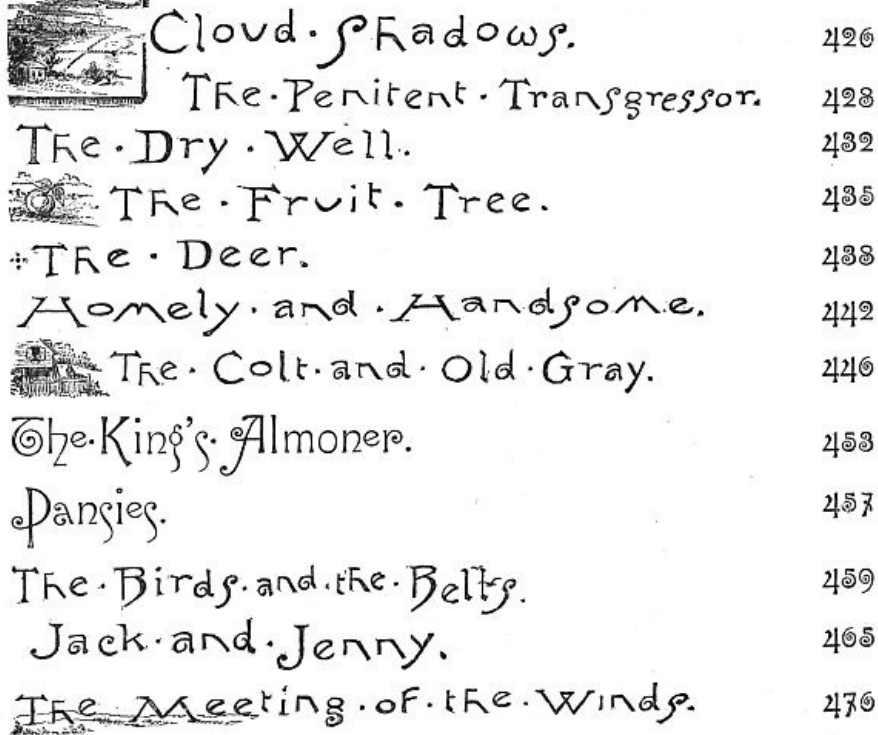 Cloud · Shadows. 426
The · Penitent · Transgressor. 428
The · Dry · Well. 432
The · Fruit · Tree. 435
The · Deer. 438
Homely · and · Handsome. 442
The · Colt · and · Old · Gray. 446
The · King's · Almoner. 453
Pansies. 457
The · Birds · and · the · Bells. 459
Jack · and · Jenny. 465
The Meeting · of · the · Winds. 476